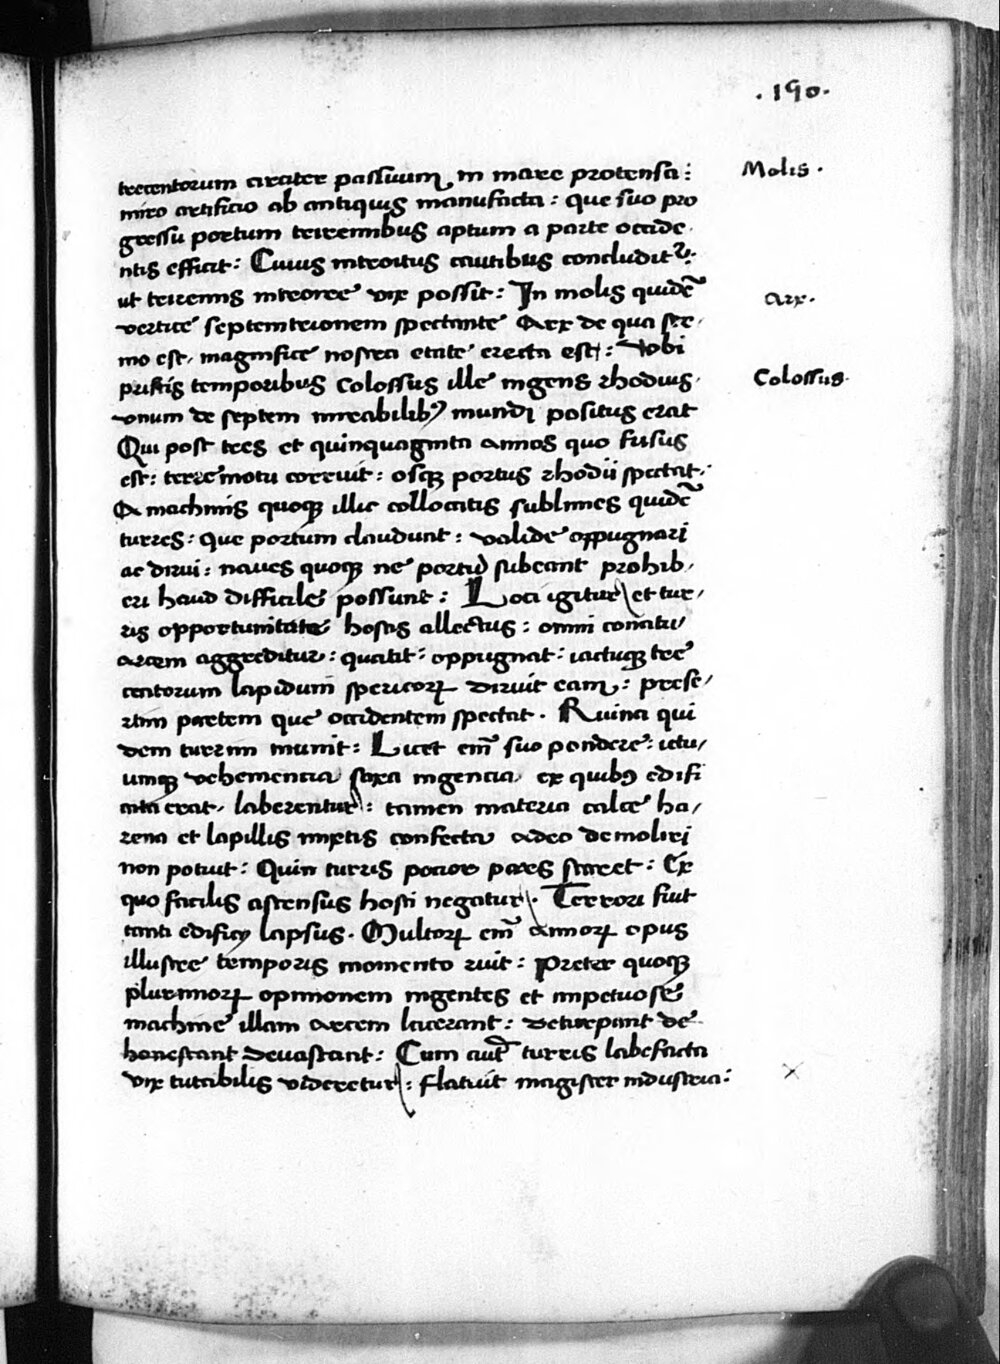 .190.
trecentorum circiter passuum in mare protensa: Molis.
miro artificio ab antiquis manufacta: que suo pro
gressu portum triremibus aptum a parte occide,
ntis efficit: Cuius introitus cautibus concluditr:
ut triremis introire vix possit: In molis quidē Arx.
vertice septemtrionem spectante Arx de qua ser,
mo est, magnifice nostra etate erecta est: Vobi
priscis temporibus Colossus ille ingens rhodius, Colossus.
vnum de septem mirabilibꝰ mundi positus erat
Qui post tres et quinquaginta annos quo fusus
est: terre motu corruit: osqꝫ portus rhodii spectat:
A machinis quoqꝫ illic collocatis sublimes quidē
turres: que portum claudunt: valide oppugnari
ac dirui: naues quoqꝫ ne portū subeant prohib,
eri haud difficile possunt: Loci igitur et tur,
ris opportunitate hostis allectus: omni conatu
arcem aggreditur: quatit: oppugnat: iactuqꝫ tre
centorum lapidum spericoꝝ diruit eam: prese,
rtim partem que occidentem spectat. Ruina qui
dem turrim munit: Licet em̄ suo pondere: ictu,
umqꝫ vehementia saxa ingentia, ex quibꝰ edifi
cata erat, laberentur: tamen materia calce ha,
rena et lapillis mixtis confecta adeo demoliri
non potuit: Quin turris potior pars staret: Ex
quo facilis ascensus hosti negatur. Terrori fuit
tanti edificij lapsus. Multoꝝ em̄ annoꝝ opus
illustre temporis momento ruit: Preter quoqꝫ
plurimoꝝ opinionem ingentes et impetuose
machine illam arcem lacerant: deturpant de
honestant deuastant: Cum aut̄ turris labefacta
vix tutabilis videretur: statuit magister industria: